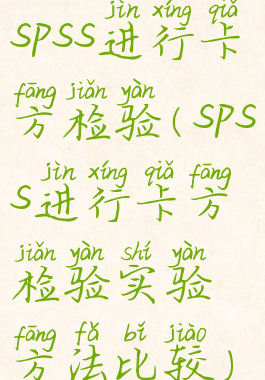 jìn xíng qiǎ
SPSS进行卡
fāng jiǎn yàn
方检验(SPS
jìn xíng qiǎ fāng
S进行卡方
jiǎn yàn shí yàn
检验实验
fāng fǎ bǐ jiào
方法比较)